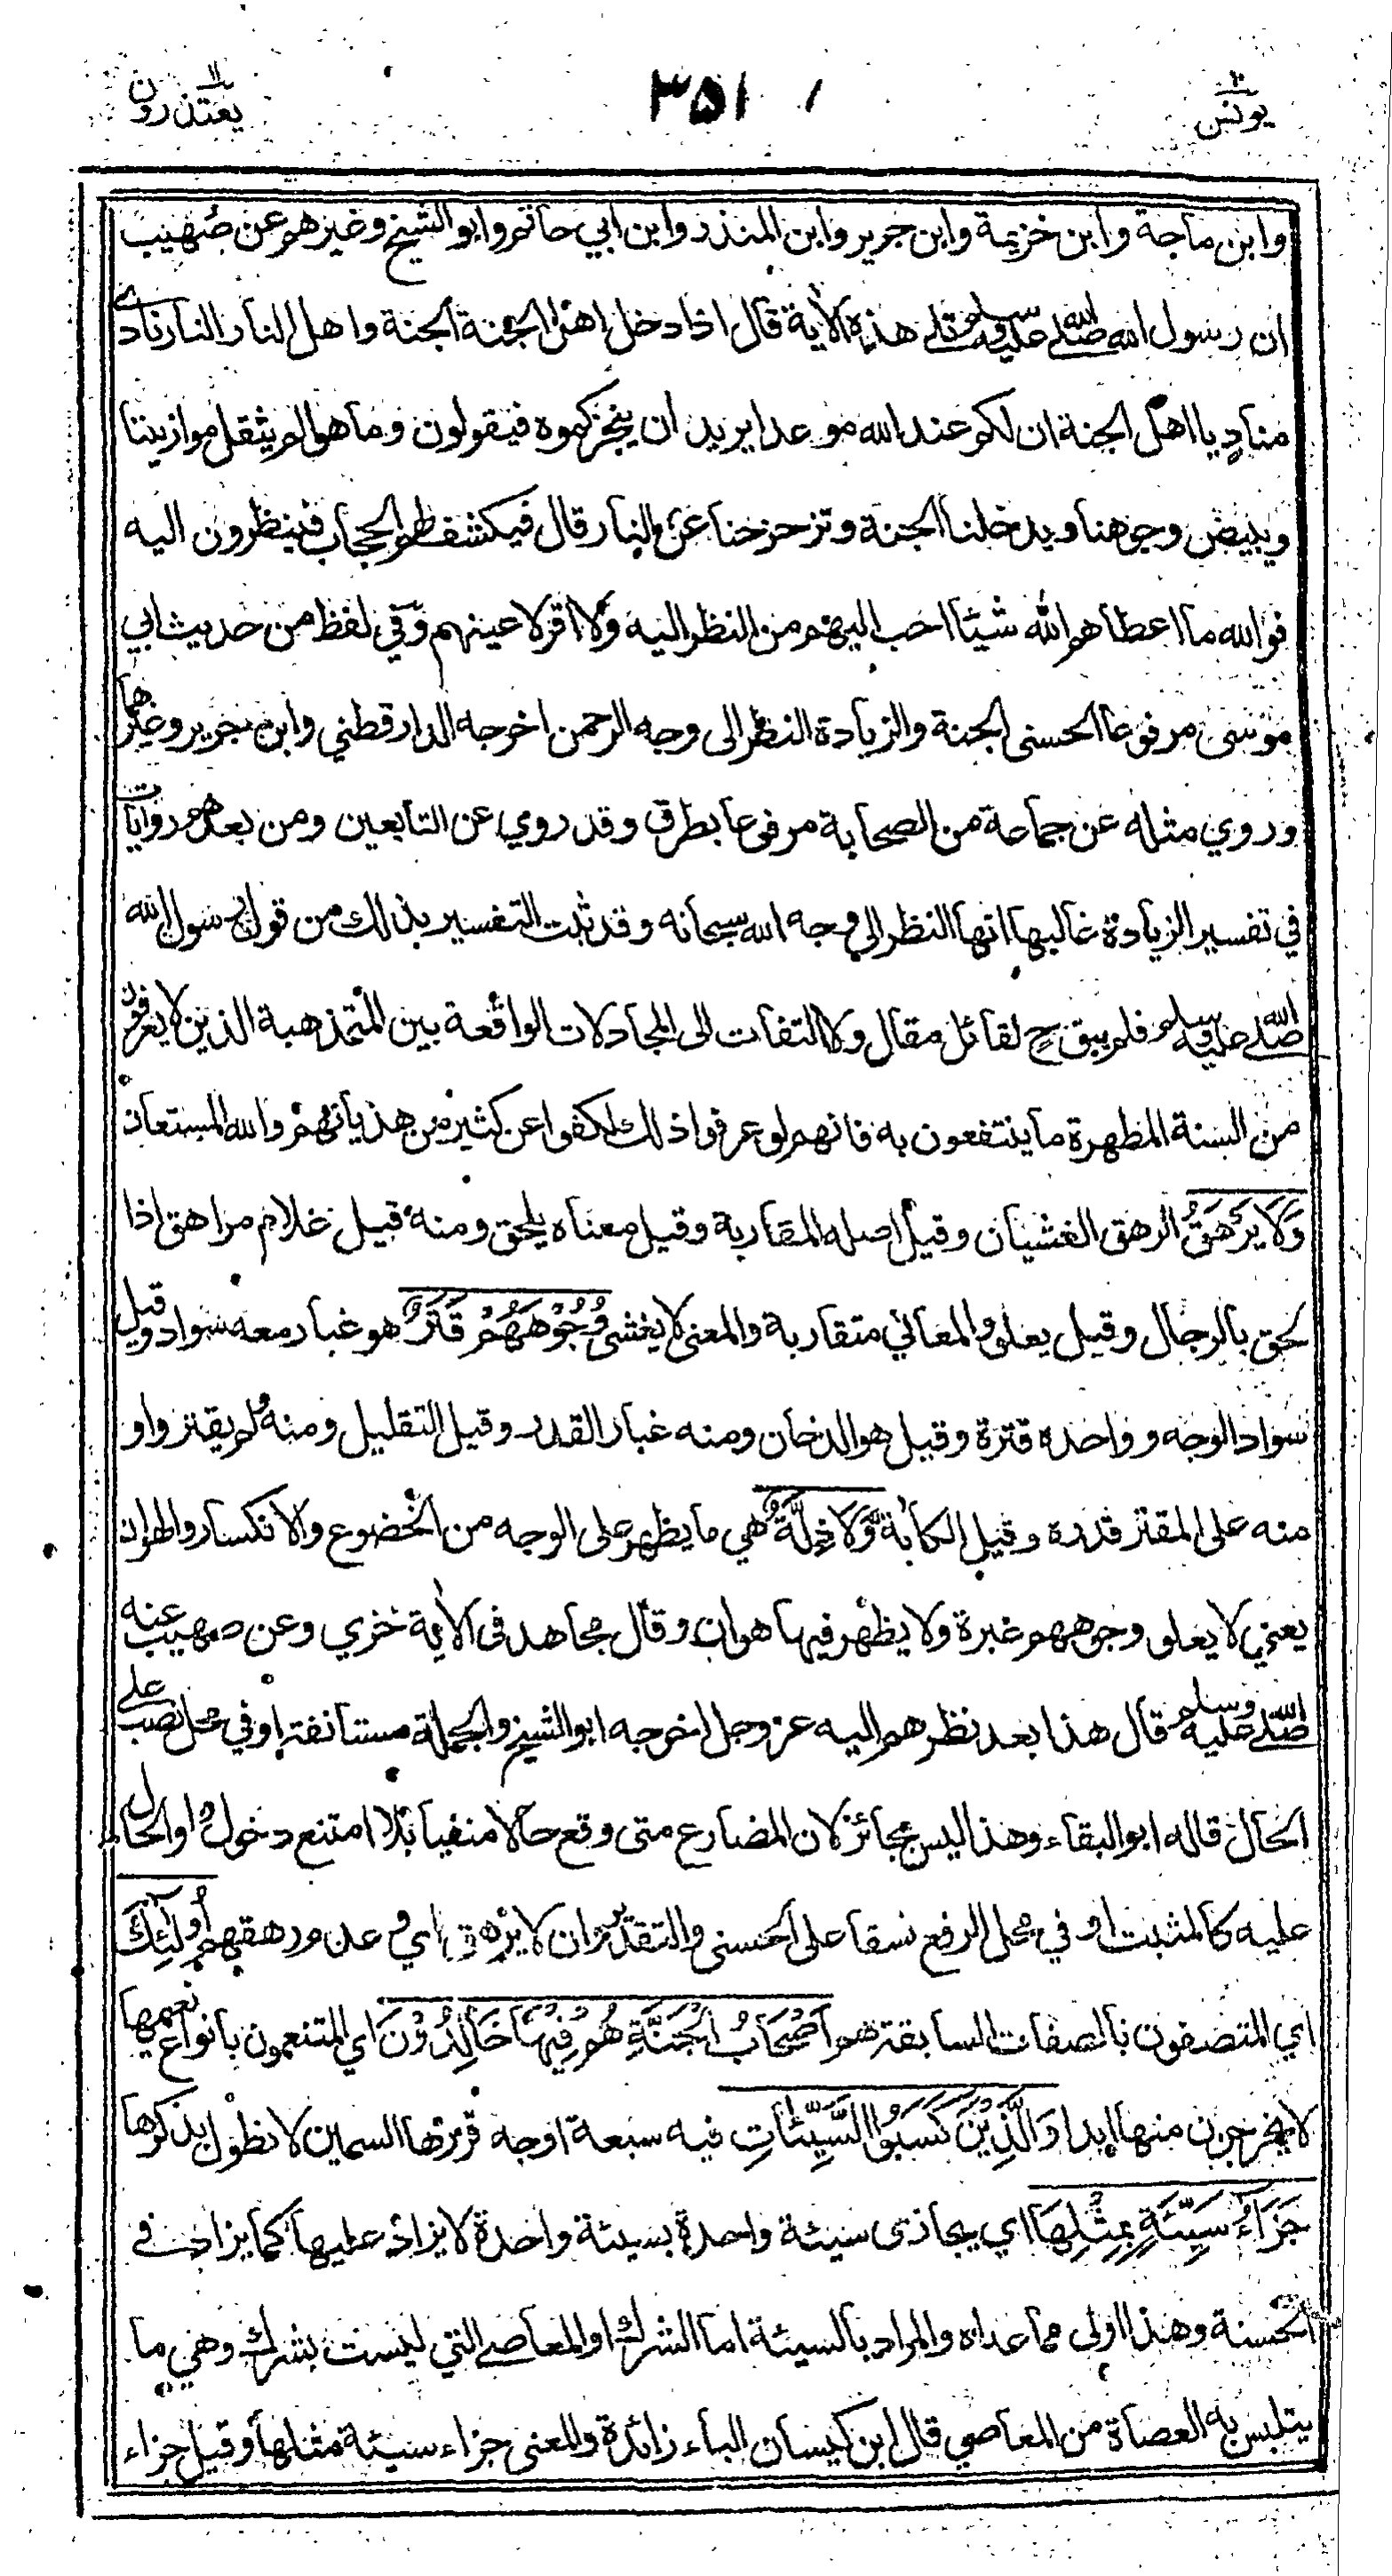 ١٠ يونس
٣٥١
١١ يعتذرون
وابن ماجة وابن خزيمة وابن جرير وابن المنذر وابن ابي حاتم وابو الشيخ وغيرهم عن صهيب
ان رسول الله صلى الله عليه وسلم تلى هذه الأية قال اذا دخل اهل الجنة الجنة واهل النار النار نادى
مناد يا اهل الجنة ان لكم عند الله موعدا يريد ان ينجزكموه فيقولون وما هو الم يثقل موازيننا
ويبيض وجوهنا ويدخلنا الجنة وتزحزحنا عن النار قال فيكشف لهم الحجاب فينظرون اليه
فوالله ما اعطاهم الله شيئا احب اليهم من النظر اليه ولا اقر لاعينهم وفي لفظ من حديث ابي
موسى مرفوعا الحسنى الجنة والزيادة النظر الى وجه الرحمن اخرجه الدارقطني وابن جرير وغيرهما
وروي مثله عن جماعة من الصحابة مرفوعا بطرق وقد روي عن التابعين ومن بعدهم روايات
في تفسير الزيادة غالبها انها النظر الى وجه الله سبحانه وقد ثبت التفسير بذلك من قول رسول الله
صلى الله عليه وسلم فلم يبق ح لقائل مقال ولا التفات الى المجادلات الواقعة بين المتمذهبة الذين لا يعرفون
من السنة المطهرة ما ينتفعون به فانهم لو عرفوا ذلك لكفوا عن كثير من هذيانهم والله المستعان
وَلَا يَرْهَقُ الرهق الغشيان وقيل اصله المقاربة وقيل معناه يلحق ومنه قيل غلام مراهق اذا
لحق بالرجال وقيل يعلو والمعاني متقاربة والمعنى لا يغشى وُجُوْهَهُمْ قَتَرٌ هو غبار معه سواد وقيل
سواد الوجه وواحده قترة وقيل هو الدخان ومنه غبار القدر وقيل التقليل ومنه لم يقتروا و
منه على المقتر قدره وقيل الكأبة وَّلَا ذِلَّةٌ هي ما يظهر على الوجه من الخضوع والانكسار والهوان
يعني لا يعلو وجوههم غبرة ولا يظهر فيها هوان وقال مجاهد في الأية خزي وعن صهيب عنه
صلى الله عليه وسلم قال هذا بعد نظرهم اليه عز وجل اخرجه ابو الشيخ والجملة مستانفة او في محل نصب على
الحال قاله ابو البقاء وهذا ليس بجائز لان المضارع متى وقع حالا منفيا بلا امتنع دخول واو الحال
عليه كالمثبت او في محل الرفع نسقا على الحسنى والتقدير وان لا يرهق اي وعدم رهقهم أُولٰئِكَ
اي المتصفون بالصفات السابقة هم أَصْحَابُ الْجَنَّةِ هُمْ فِيْهَا خَالِدُوْنَ اي المتنعمون بانواع نعيمها
لا يخرجون منها ابدا وَالَّذِيْنَ كَسَبُوا السَّيِّئَاتِ فيه سبعة اوجه قررها السمين لا نطول بذكرها
جَزَآءُ سَيِّئَةٍ بِمِثْلِهَا اي يجازى سيئة واحدة بسيئة واحدة لا يزاد عليها كما يزاد في
الحسنة وهذا اولى مما عداه والمراد بالسيئة اما الشرك او المعاصي التي ليست بشرك وهي ما
يتلبس به العصاة من المعاصي قال ابن كيسان الباء زائدة والمعنى جزاء سيئة مثلها وقيل جزاء